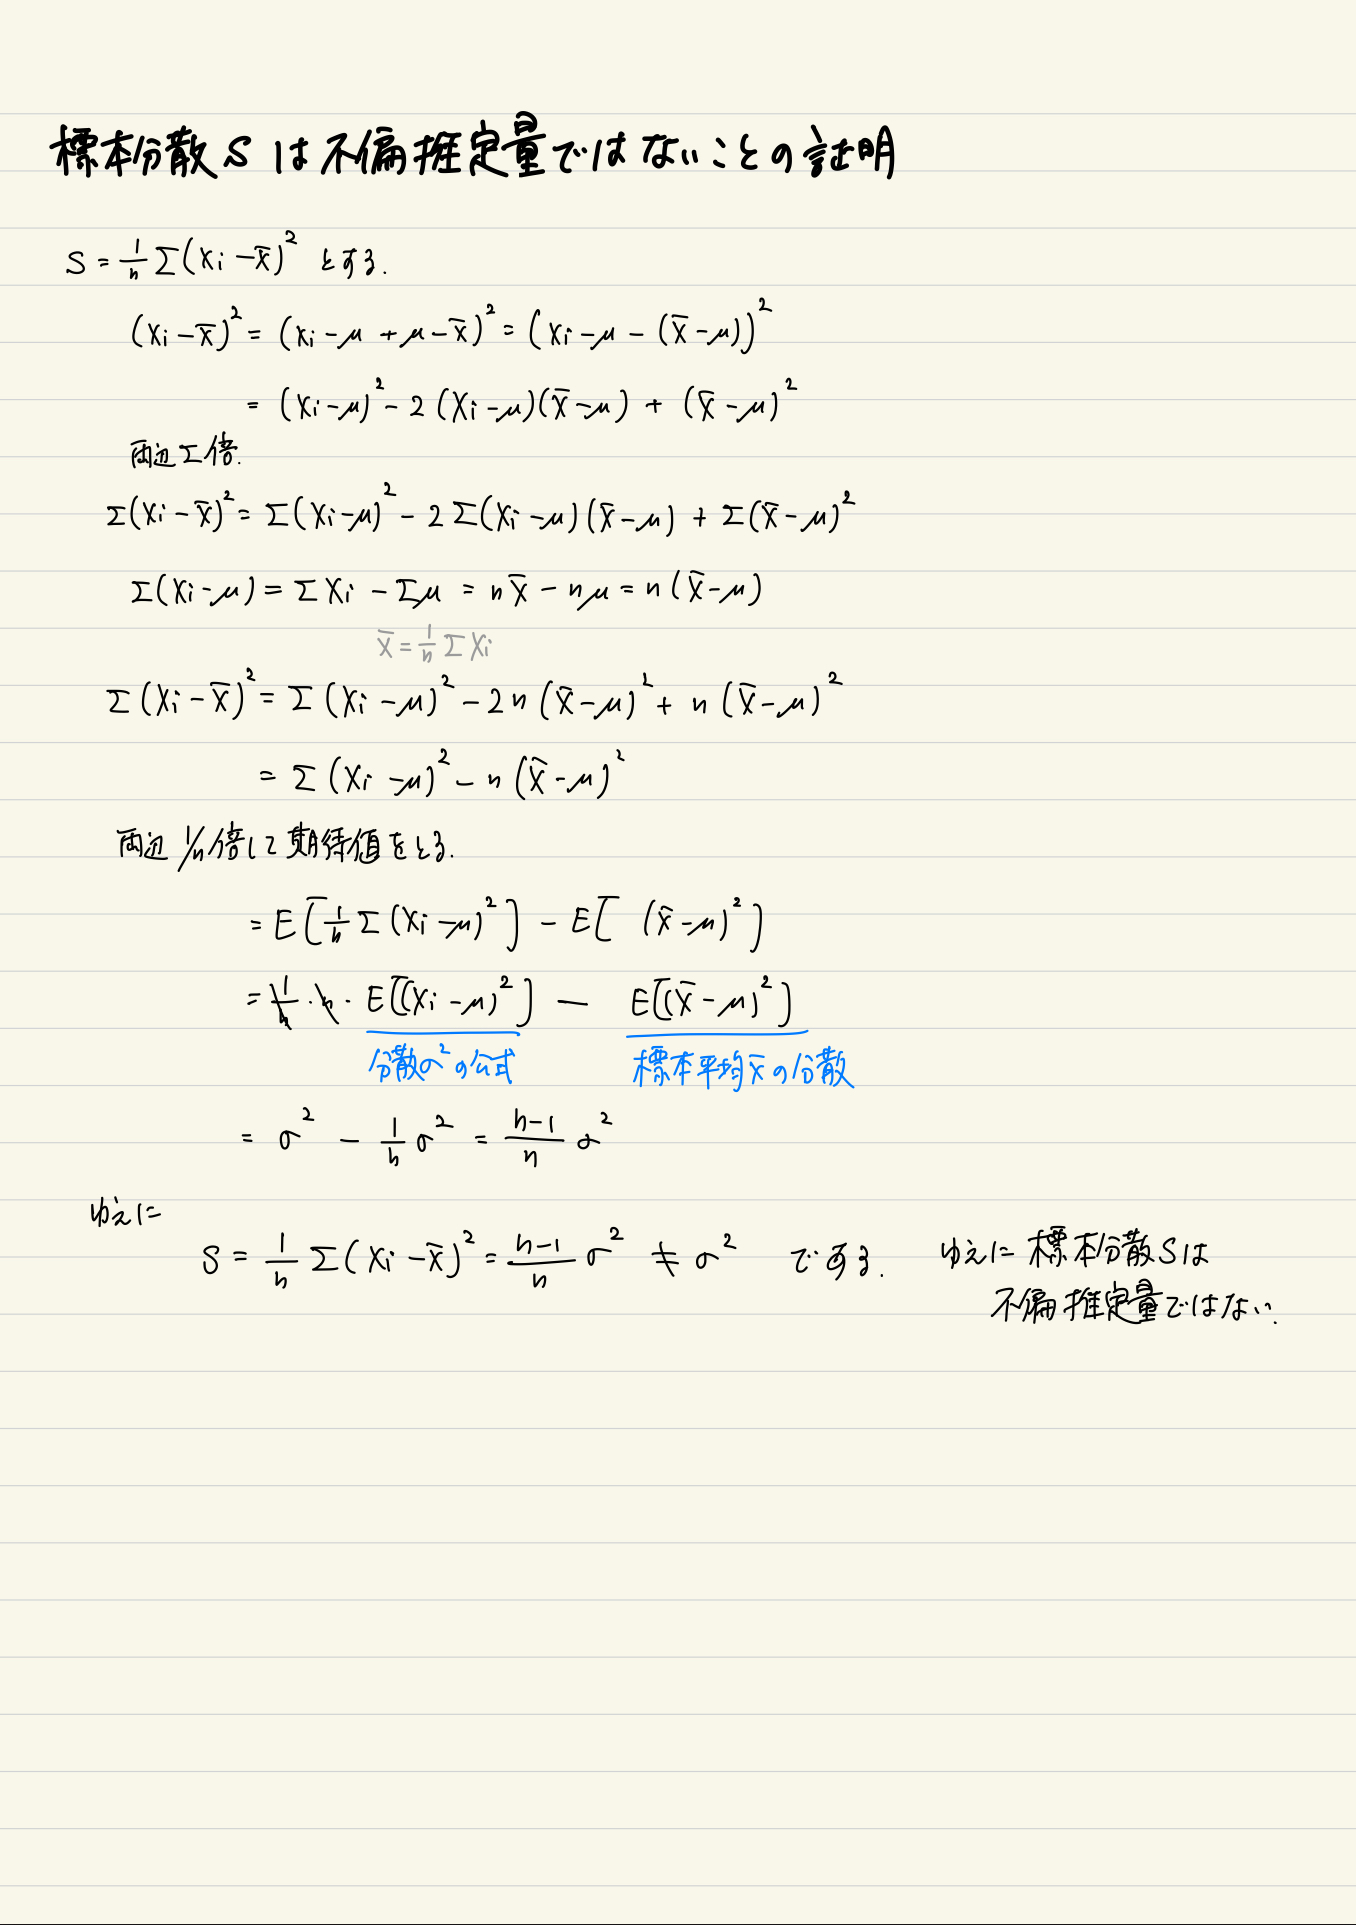 標本分散Sは不偏推定量ではないことの証明
S = 1/n Σ(Xi − x̄)² とする.
(Xi − x̄)² = (xi − μ + μ − x̄)² = (xi − μ − (x̄ − μ))²
= (xi − μ)² − 2(Xi − μ)(x̄ − μ) + (x̄ − μ)²
両辺Σ倍.
Σ(Xi − x̄)² = Σ(Xi − μ)² − 2Σ(Xi − μ)(x̄ − μ) + Σ(x̄ − μ)²
Σ(Xi − μ) = ΣXi − Σμ = nx̄ − nμ = n(x̄ − μ)
x̄ = 1/n ΣXi
Σ(Xi − x̄)² = Σ(Xi − μ)² − 2n(x̄ − μ)² + n(x̄ − μ)²
= Σ(Xi − μ)² − n(x̄ − μ)²
両辺 1/n倍して期待値をとる.
= E[1/n Σ(Xi − μ)²] − E[ (x̄ − μ)²]
= 1/n · n · E[(Xi − μ)²] − E[(x̄ − μ)²]
分散σ²の公式 標本平均x̄の分散
= σ² − 1/n σ² = n−1/n σ²
ゆえに
S = 1/n Σ(Xi − x̄)² = n−1/n σ² ≠ σ² である. ゆえに標本分散Sは
不偏推定量ではない.